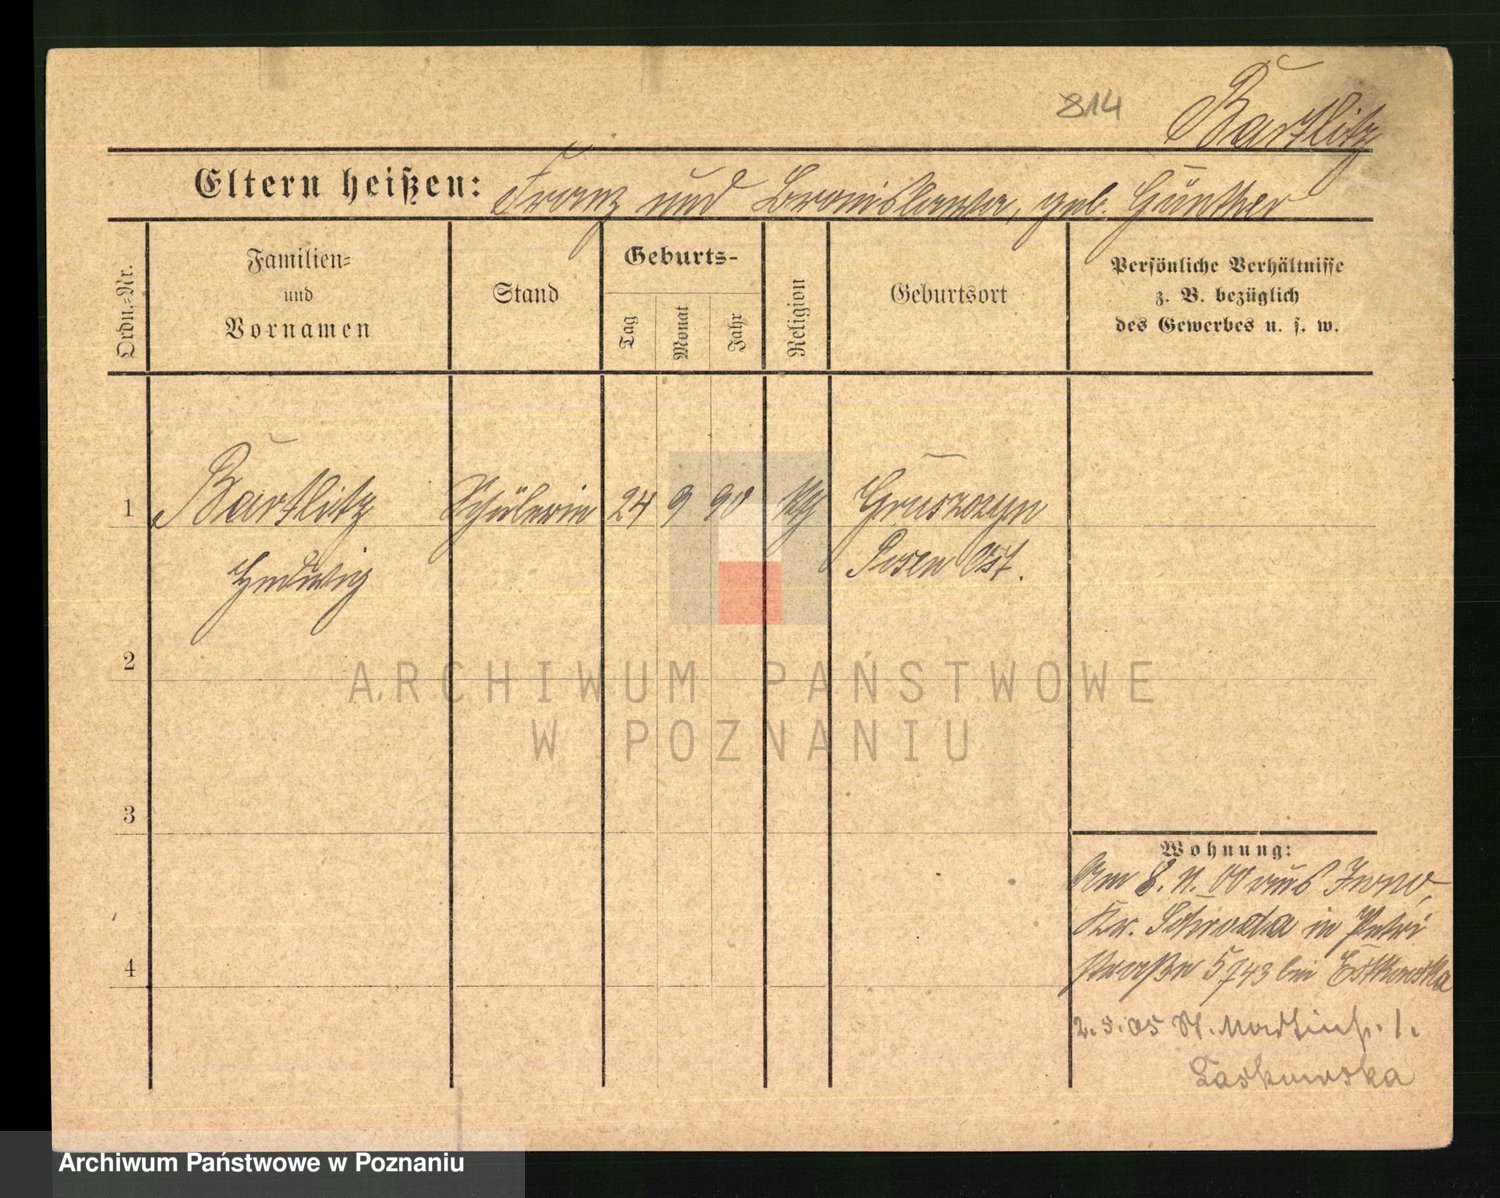 814
Bartlitz
Eltern heißen: Franz und Bronislawa, geb. Günther
Ordn.-Nr.
Familien-
und
Vornamen
Stand
Geburts-
Tag
Monat
Jahr
Religion
Geburtsort
Persönliche Verhältnisse
z. B. bezüglich
des Gewerbes u. s. w.
1 Bartlitz Schülerin 24 9 90 kth Gruszczyn
Hedwig Posen Ost.
2
3
4
Wohnung:
Am 8. 11. 00 aus Iwno,
Kr. Schroda in Petri
straße 5 943 bei
2.3.05 St. Martinstr. 1.
Laskowska
ARCHIWUM PAŃSTWOWE
W POZNANIU
Archiwum Państwowe w Poznaniu